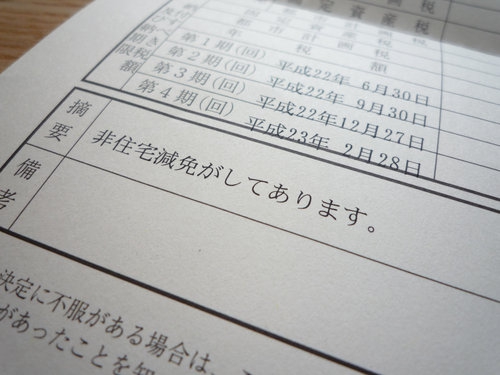 定資産税
固定資産税
都市計画税
年税額
第1期(回) 平成22年 6月30日
第2期(回) 平成22年 9月30日
第3期(回) 平成22年12月27日
第4期(回) 平成23年 2月28日
摘要 非住宅減免がしてあります。
備考
決定に不服がある場合は、
があったことを知